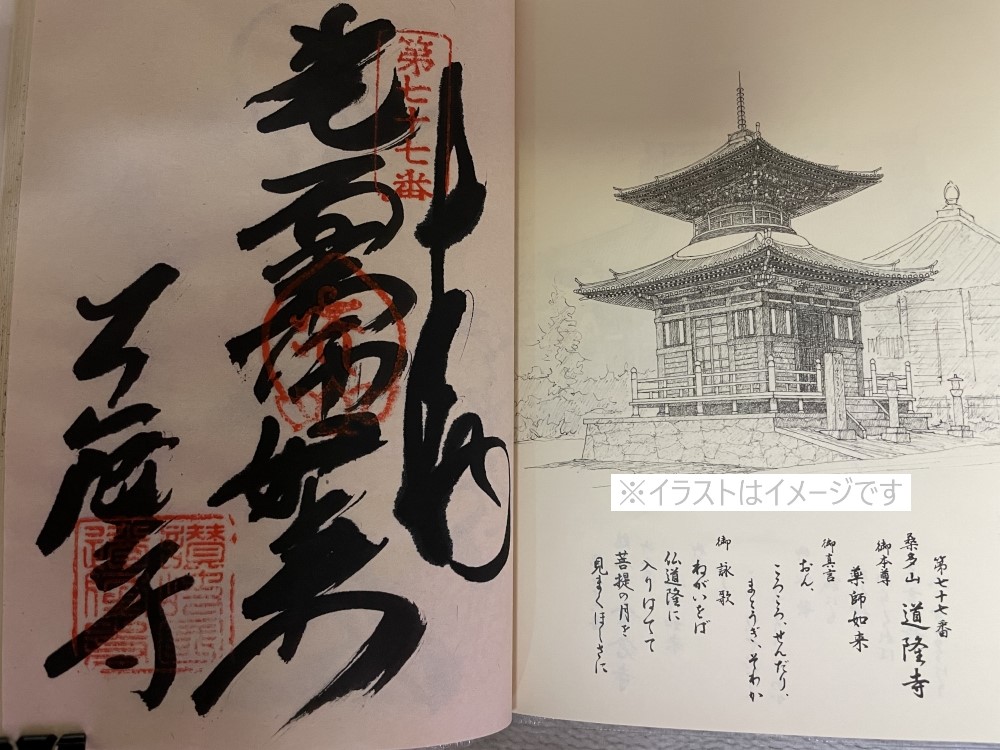 ※イラストはイメージです
第七十七番
桑多山 道隆寺
御本尊
薬師如来
御真言
おん、
ころころ、せんだり、
まとうぎ、そわか
御詠歌
ねがいをば
仏道隆に
入りはてて
菩提の月を
見まくほしさに
第七十七番
如来
道隆寺